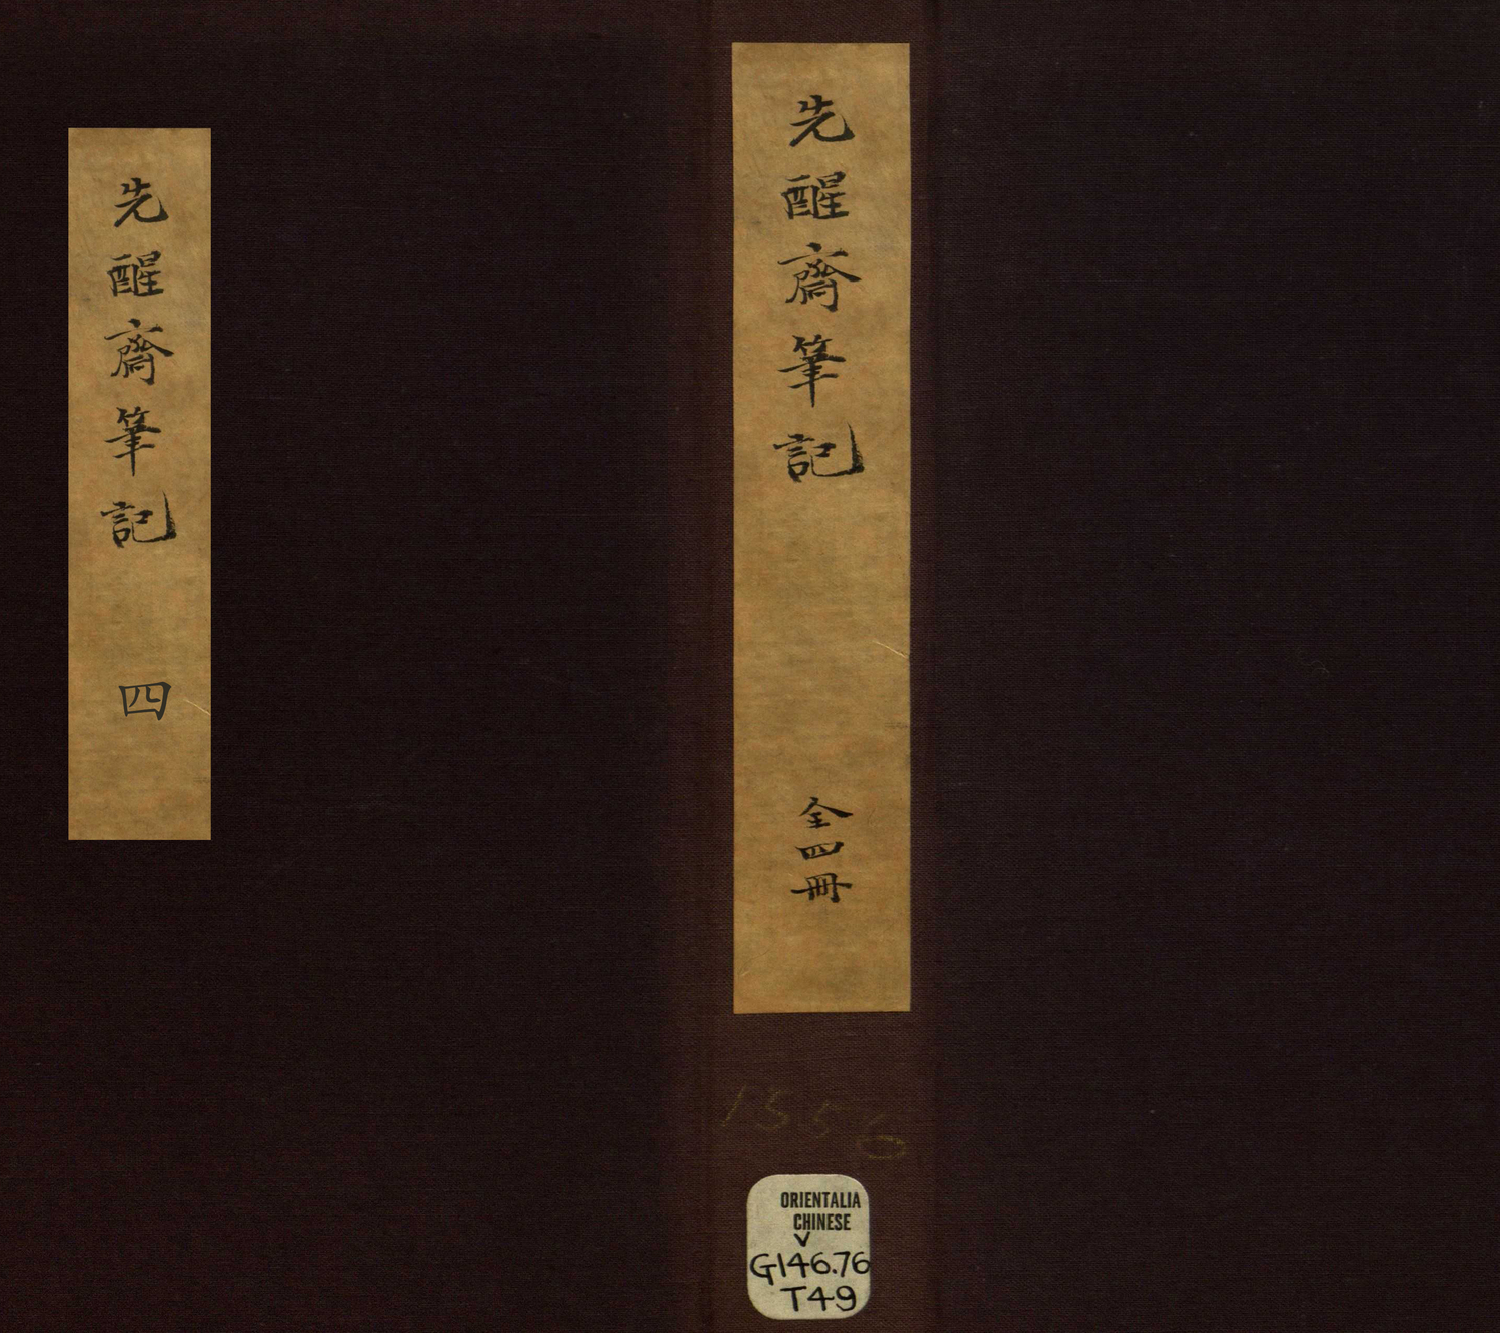 先醒齋筆記
全四冊
1556
ORIENTALIA
CHINESE
V
G146.76
T49
先醒齋筆記
四